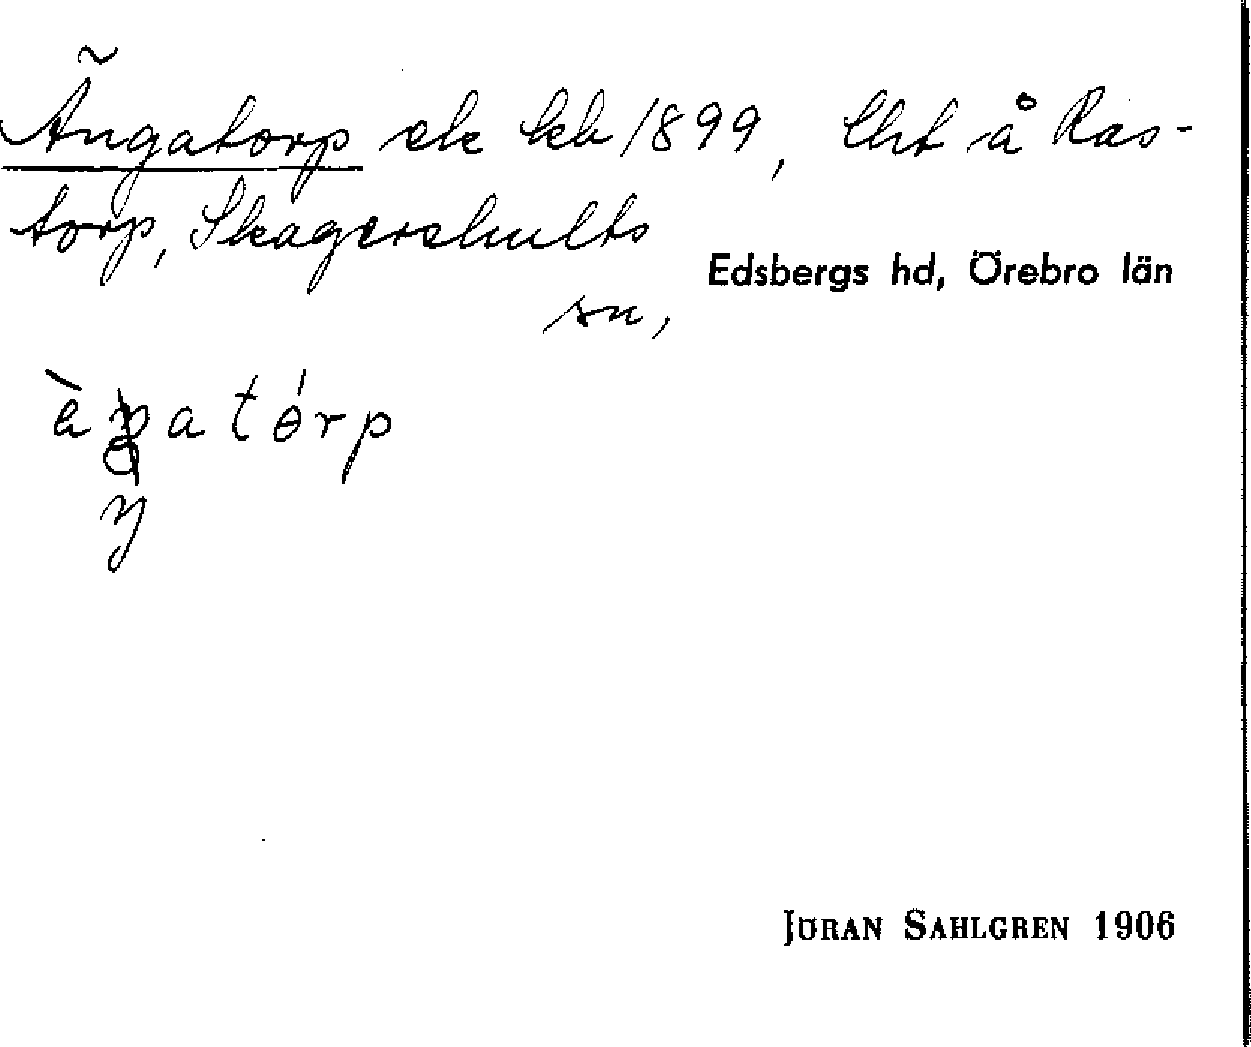 Ängatorp ek kb 1899, lht å Ras-
torp, Skagershults
Edsbergs hd, Örebro län
sn,
JÖRAN SAHLGREN 1906